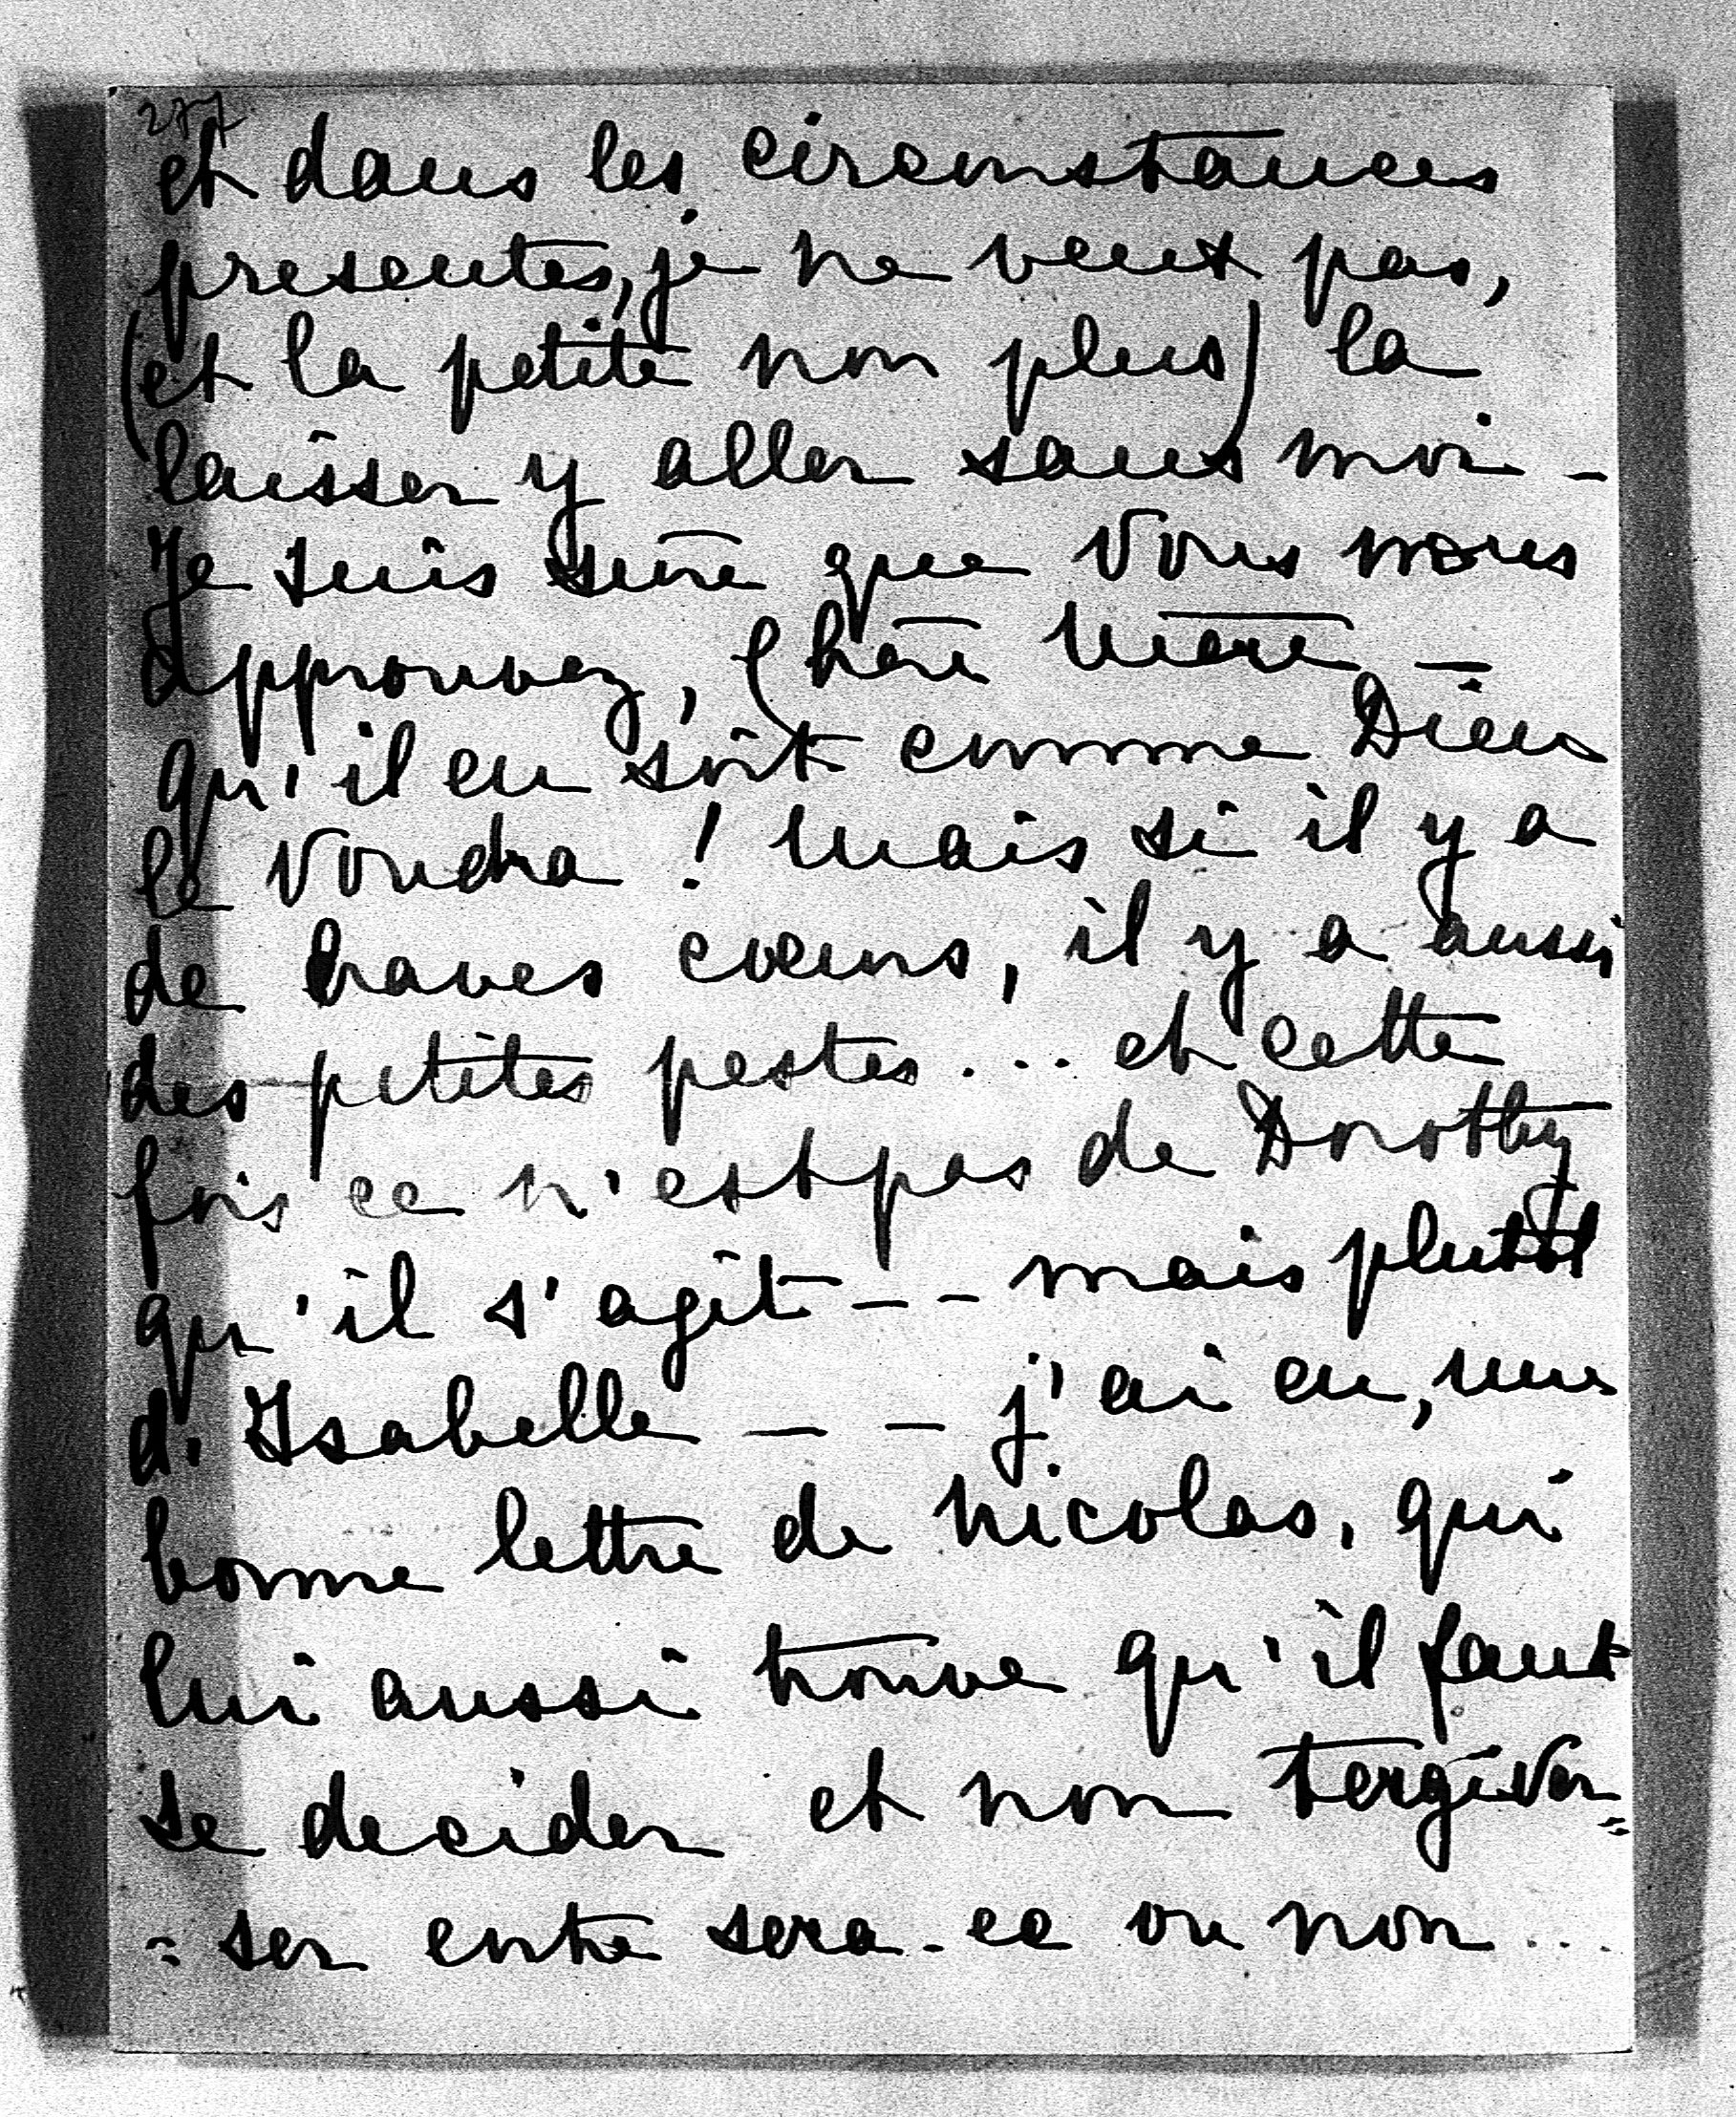 277
et dans les circonstances
presentes, je ne veux pas,
(et la petite non plus) la
laisser y aller sans moi -
Je suis sure que Vous nous
approuvez, Chère Mère -
qu'il en soit comme Dieu
le Voudra ! Mais si il y a
de braves coeurs, il y a aussi
des petites pestes... et cette
fois ce n'est pas de Dorothy
qu'il s'agit -- mais plutot
d'Isabelle -- j'ai eu, une
bonne lettre de Nicolas, qui
lui aussi trouve qu'il faut
se decider et non tergiver=
=ser entre sera-ce ou non...